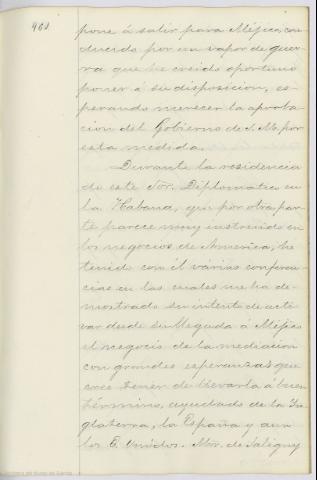 461
pone á salir para Méjico, con
ducido por un vapor de guer
ra que he creido oportuno
poner á su disposicion, es
perando merecer la aproba
cion del Gobierno de S. M. por
esta medida.
Durante la residencia
de este Sor. Diplomático en
la Habana, que por otra par
te parece muy instruido en
los negocios de America, he
tenido con él várias conferen
cias en las cuales me ha de
mostrado su intento de acti
var desde su llegada á Méjico
el negocio de la mediacion
con grandes esperanzas que
cree tener de llevarla á buen
término, ayudado de la In
glaterra, la España y aun
los E. Unidos. Mor. de Saligny